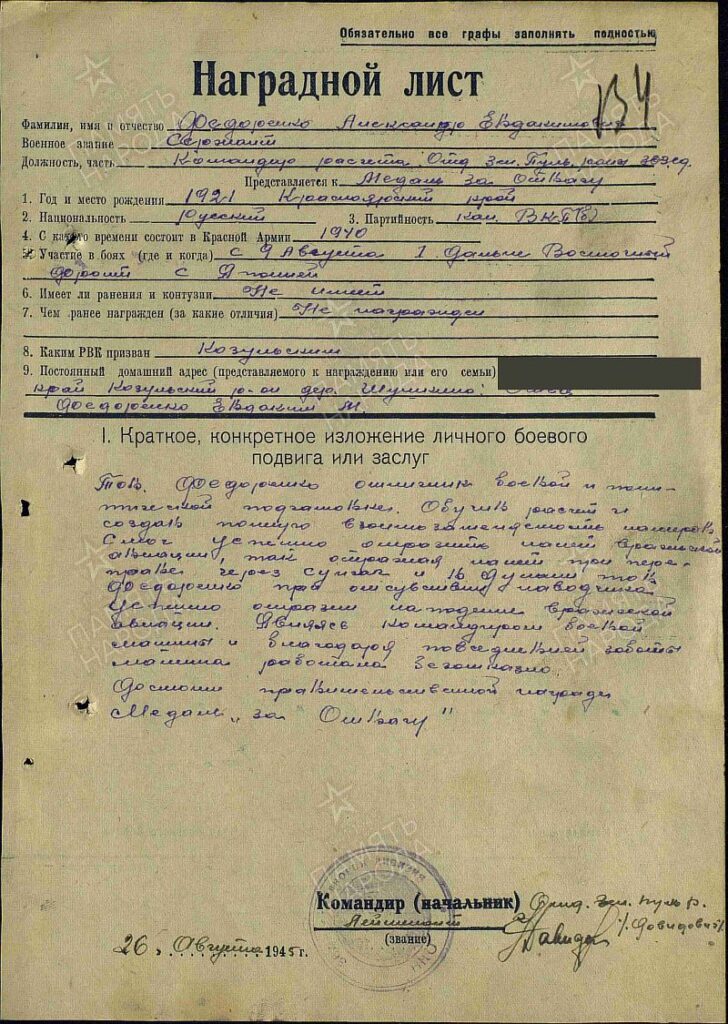 Обязательно все графы заполнять полностью
Наградной лист
Фамилия, имя и отчество Федоренко Александр Евдакимович
Военное звание Сержант
Должность, часть Командир расчета Отд зен. Пуль. роты
Представляется к Медаль за отвагу
1. Год и место рождения 1921 Красноярский край
2. Национальность русский 3. Партийность кан. ВКП(б)
4. С какого времени состоит в Красной Армии 1940
5. Участие в боях (где и когда) с 9 Августа 1 Дальне Восточный
фронт с Японией
6. Имеет ли ранения и контузии Не имеет
7. Чем ранее награжден (за какие отличия) Не награжден
8. Каким РВК призван Козульским
9. Постоянный домашний адрес (представляемого к награждению или его семьи)
край Козульский р-он дер. Отец
Федоренко Евдаким М.
I. Краткое, конкретное изложение личного боевого
подвига или заслуг
Тов. Федоренко отличник боевой и поли-
тической подготовки. Обучив расчет и
создав полную взаимозаменяемость номеров
Смог успешно отразить налет вражеской
авиации, так отражая налет при пере-
праве через Сунгач и в тов
Федоренко при отсутствии наводчика
успешно отразил нападение вражеской
авиации. Являясь командиром боевой
машины и благодаря повседневной заботы
машина работала безотказно.
Достоин правительственной награды
Медаль „за Отвагу"
Командир (начальник) Отд. зен. пуль р.
Лейтенант /Довидович/
(звание)
26 Августа 1945 г.
ПАМЯТЬ НАРОДА